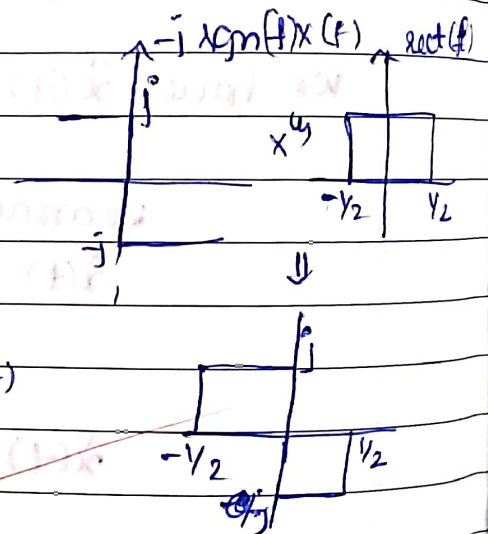 -j sgn(f)X(f) rect(f)
j
X(f)
-1/2 1/2
-j
⇓
j
)
-1/2 1/2
-j